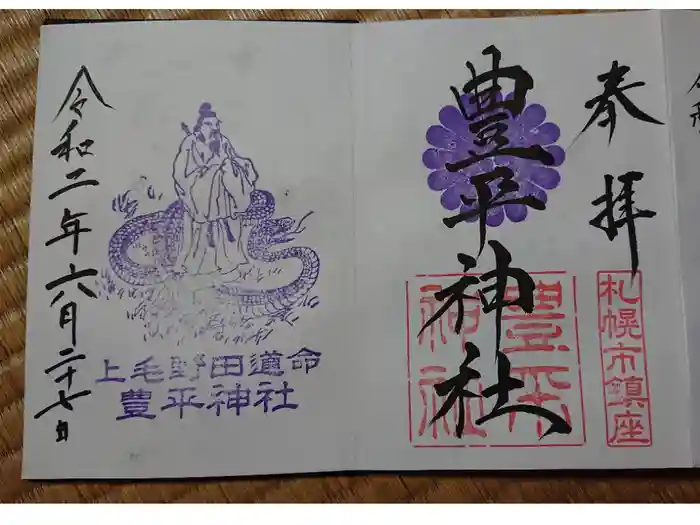 奉拝
札幌市鎮座
豊平神社
豊平
神社
上毛野田道命
豊平神社
令和二年六月二十七日